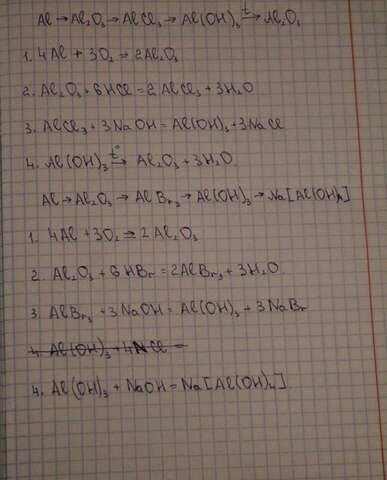 Al → Al₂O₃ → AlCl₃ → Al(OH)₃ →ᵗ Al₂O₃
1. 4Al + 3O₂ = 2Al₂O₃
2. Al₂O₃ + 6HCl = 2AlCl₃ + 3H₂O
3. AlCl₃ + 3NaOH = Al(OH)₃ + 3NaCl
4. Al(OH)₃ →ᵗ° Al₂O₃ + 3H₂O
Al → Al₂O₃ → AlBr₃ → Al(OH)₃ → Na[Al(OH)₄]
1. 4Al + 3O₂ = 2Al₂O₃
2. Al₂O₃ + 6HBr = 2AlBr₃ + 3H₂O
3. AlBr₃ + 3NaOH = Al(OH)₃ + 3NaBr
4. Al(OH)₃ +
4. Al(OH)₃ + NaOH = Na[Al(OH)₄]